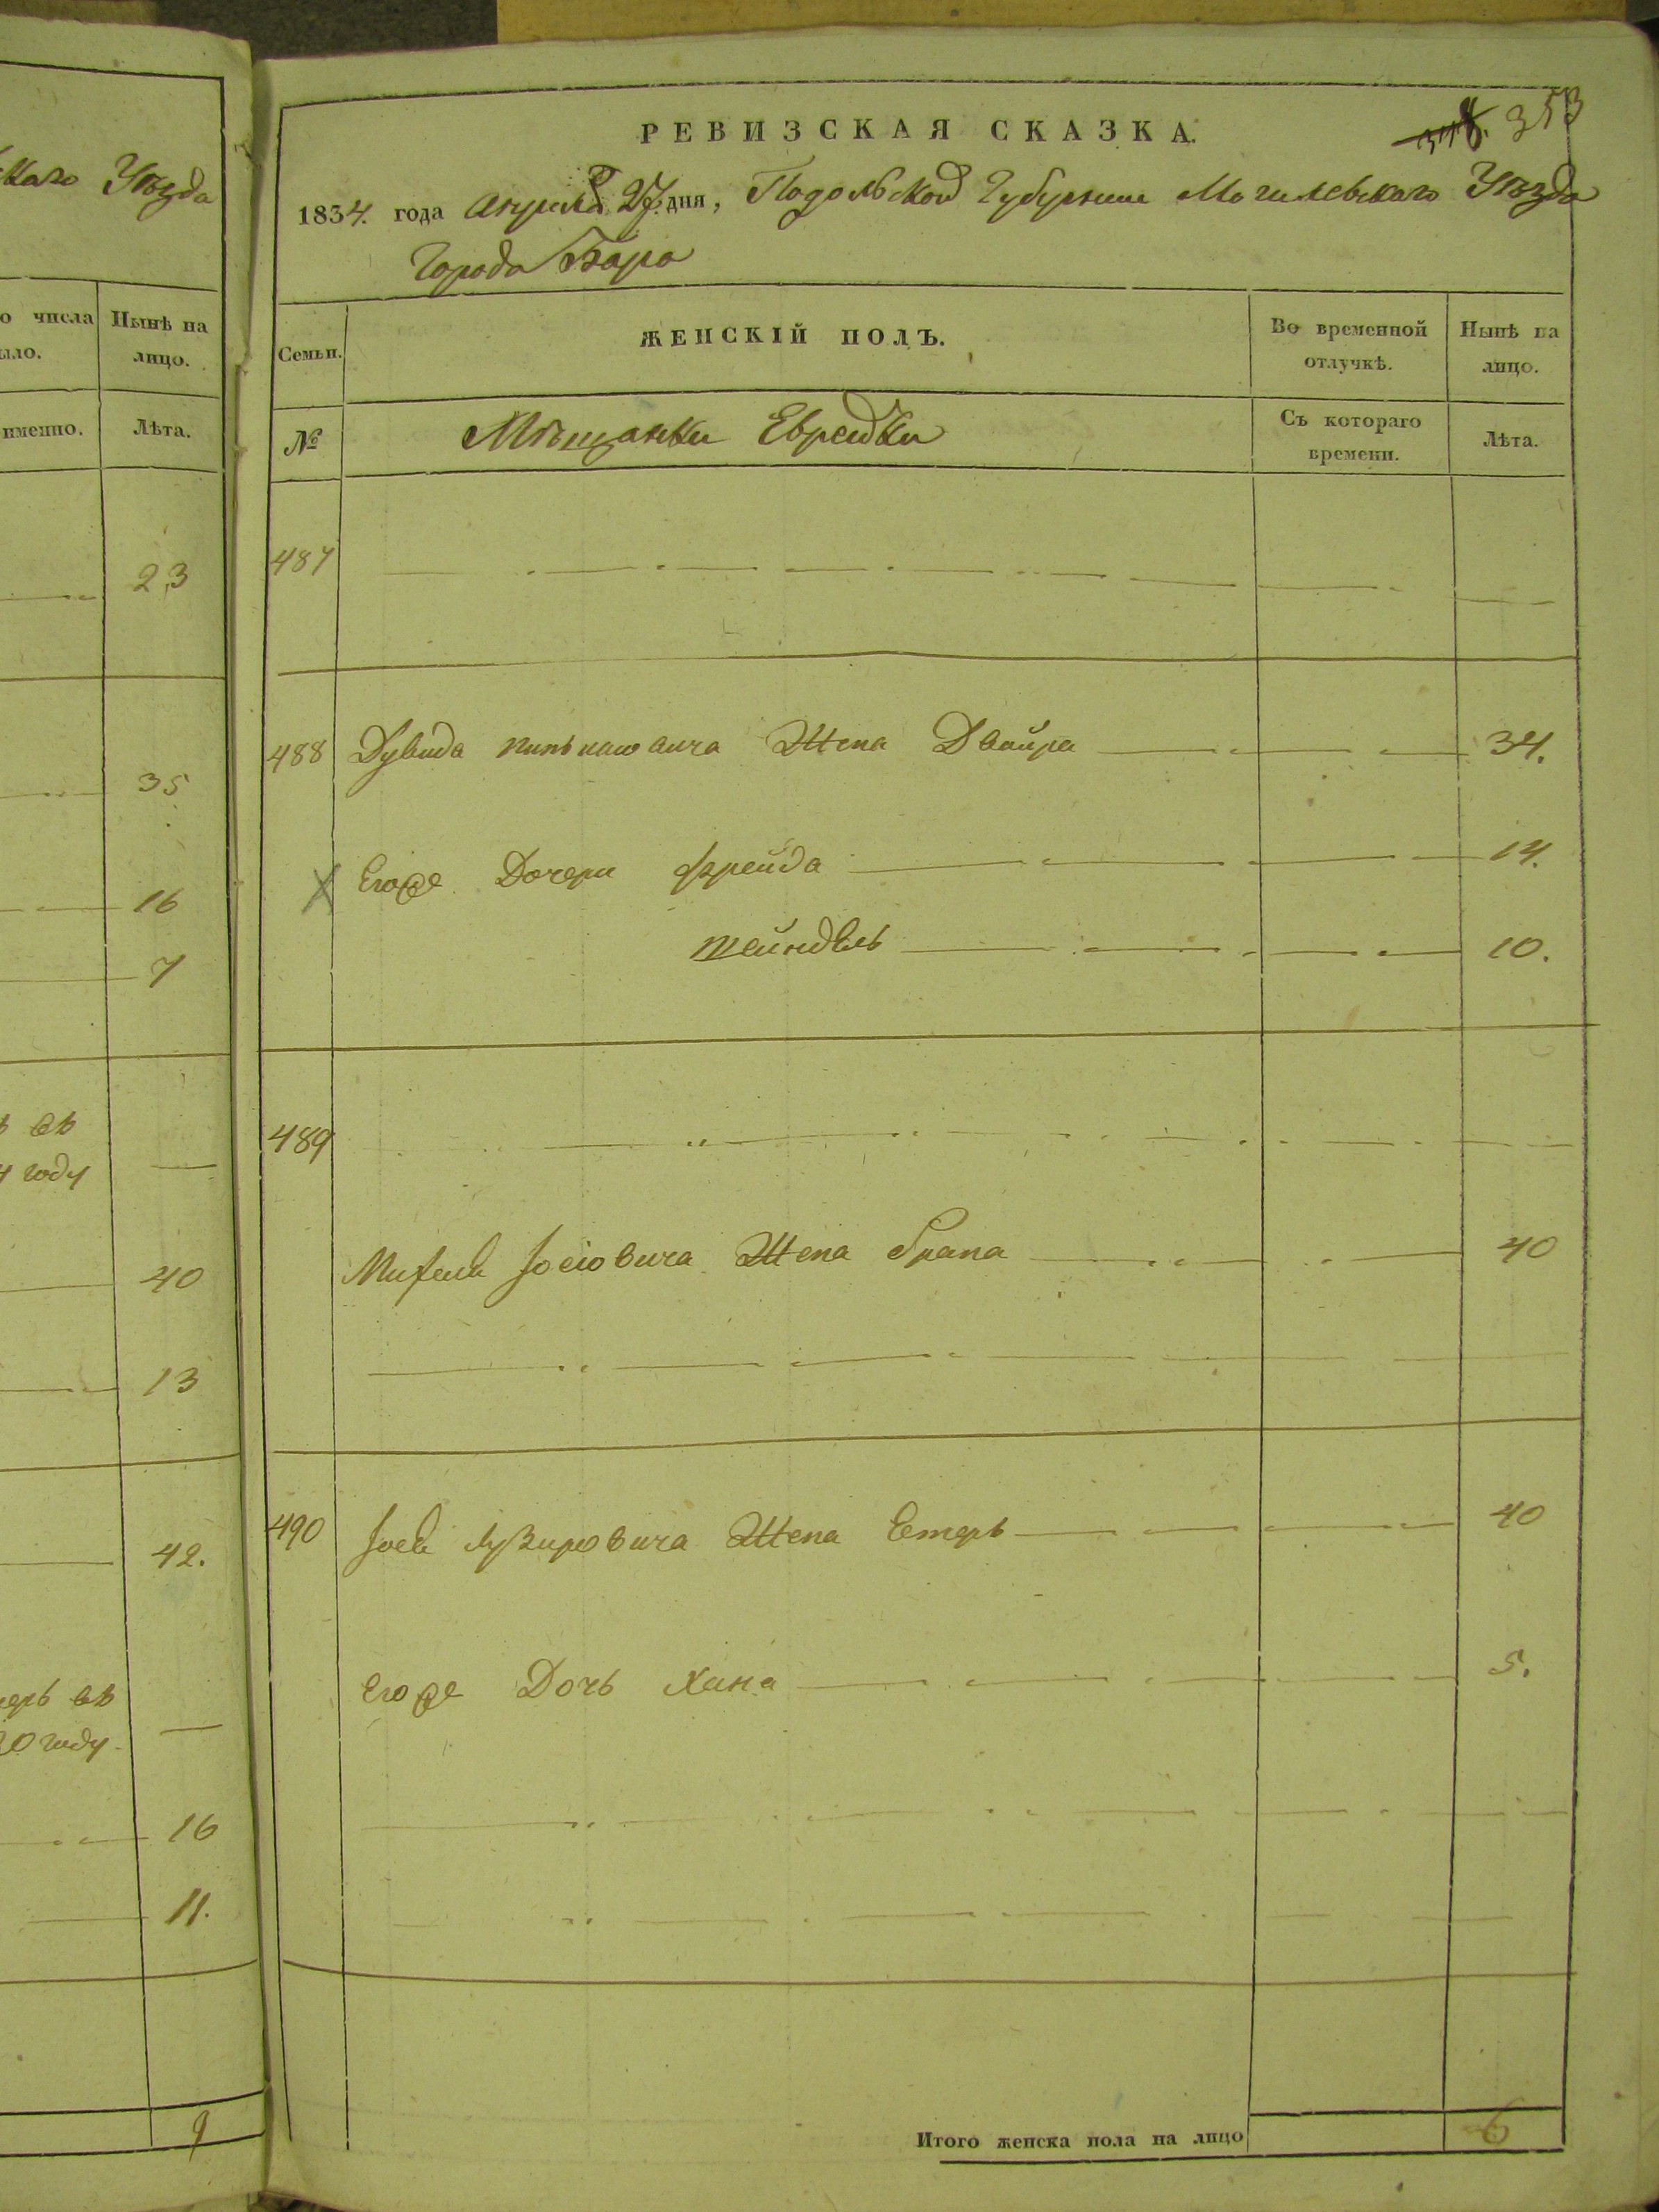 каго Уѣзда
о числа
ыло.
Нынѣ на
лицо.
именно.
Лѣта.
23
35
16
7
ъ въ
4 году
40
13
42.
мерь въ
30 году
16
11.
9
РЕВИЗСКАЯ СКАЗКА.
348. 353
1834. года Апреля 27 дня, Подольской Губернии Могилевскаго Уѣзда
Города Бара
Семьи.
ЖЕНСКІЙ ПОЛЪ.
Во временной
отлучкѣ.
Нынѣ на
лицо.
№
Мѣщанки Еврейки
Съ котораго
времени.
Лѣта.
487
488 Дувида Пинькасовича Жена Двойра 34.
Егоже Дочери Фрейда 14.
Шейндель 10.
489
Іосіовича Жена Грана 40
490 Лузировича Жена Естерь 40
Егоже Дочь Хана 5.
Итого женска пола на лицо 6